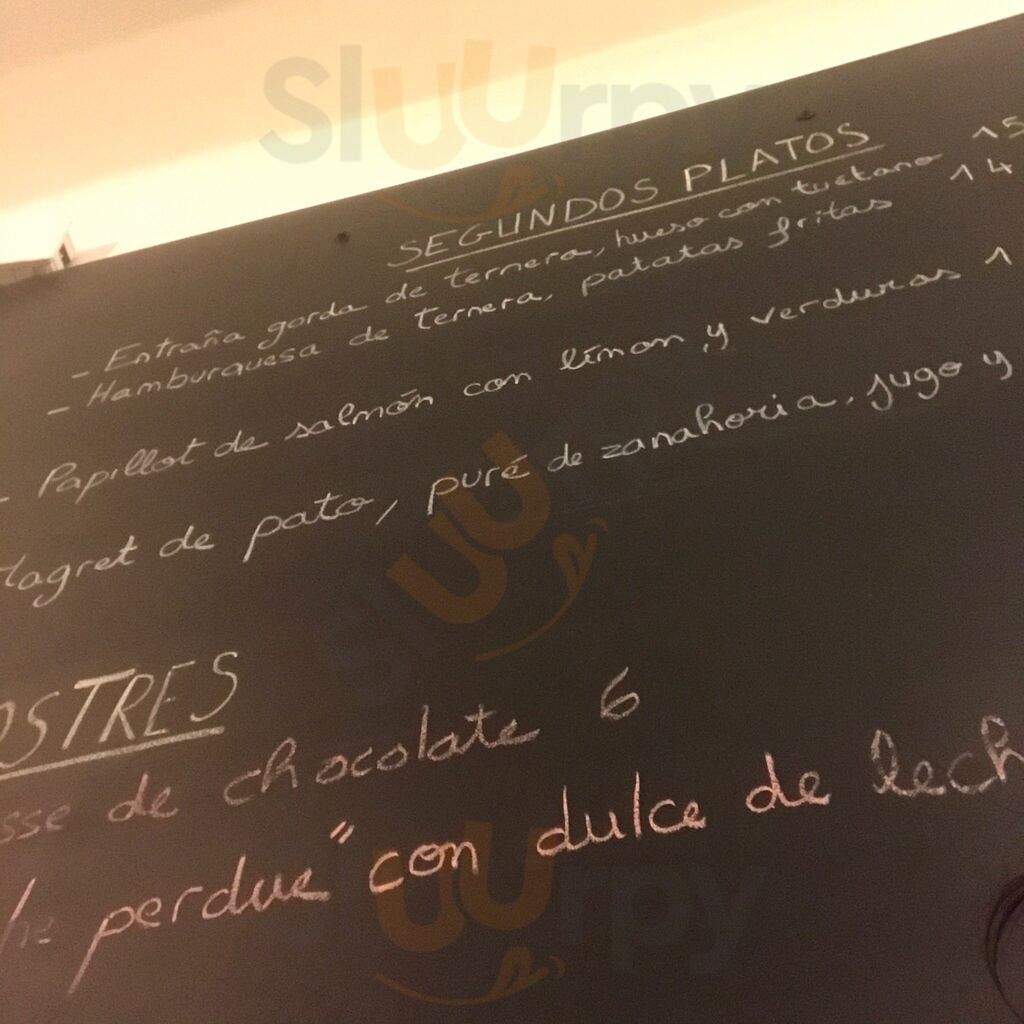 Sluurpy
SEGUNDOS PLATOS
- Entraña gorda de ternera, hueso con tuétano 15
- Hamburguesa de ternera, patatas fritas 14
- Papillot de salmón con limon y verduras 1
Magret de pato, puré de zanahoria, jugo y
OSTRES
sse de chocolate 6
he perdue" con dulce de lech
sluurpy
sluurpy